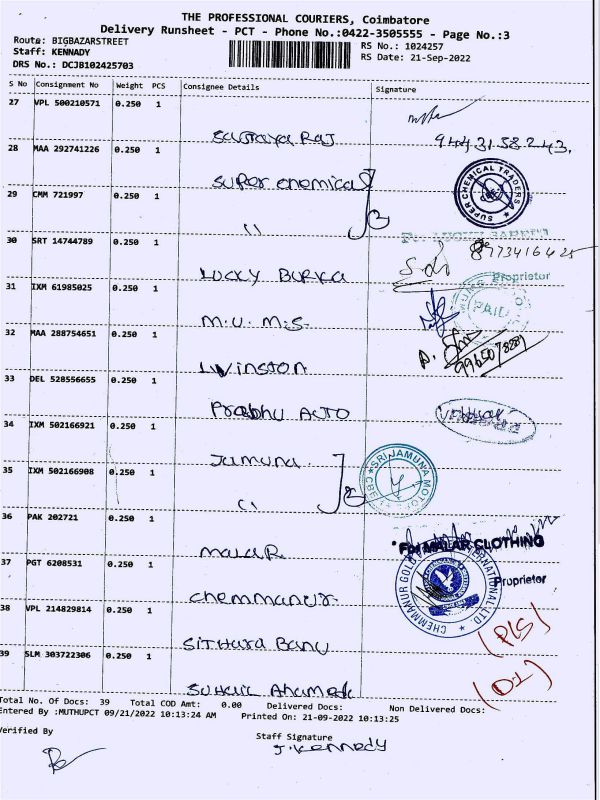 THE PROFESSIONAL COURIERS, Coimbatore
Delivery Runsheet - PCT - Phone No.:0422-3505555 - Page No.:3
Route: BIGBAZARSTREET
RS No.: 1024257
Staff: KENNADY
RS Date: 21-Sep-2022
DRS No.: DCJB102425703
S No Consignment No Weight PCS Consignee Details Signature
27 VPL 500210571 0.250 1
9443158243
28 MAA 292741226 0.250 1
Super chemical
SUPER CHEMICAL TRADERS
29 CMM 721997 0.250 1
"
30 SRT 14744789 0.250 1
8973416425
Lucky Burka
Proprietor
31 IXM 61985025 0.250 1
M.U. M.S.
PAID
32 MAA 288754651 0.250 1
Livinston
33 DEL 528556655 0.250 1
Prabhu AUTO
34 IXM 502166921 0.250 1
Jamuna
SRI JAMUNA MOTORS
35 IXM 502166908 0.250 1
"
36 PAK 202721 0.250 1
MalaR
For MALAR CLOTHING
Proprietor
37 PGT 6208531 0.250 1
Chemmanur
CHEMMANUR GOLD INTERNATIONAL LTD.
38 VPL 214829814 0.250 1
Sithara Banu
39 SLM 303722306 0.250 1
Suhail Ahamed
Total No. Of Docs: 39 Total COD Amt: 0.00 Delivered Docs: Non Delivered Docs:
Entered By :MUTHUPCT 09/21/2022 10:13:24 AM Printed On: 21-09-2022 10:13:25
Verified By
Staff Signature
J. Kennedy